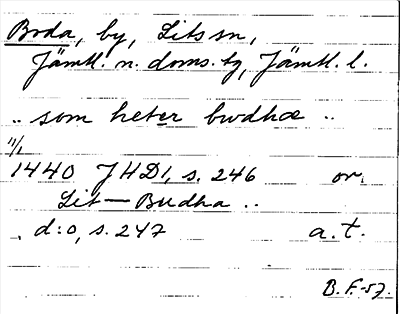 Boda, by, Lits sn,
Jämtl. n. doms. tg, Jämtl. l.
.. som heter bwdhæ ..
11/1
1440 JHD1, s. 246 or.
Lit — Budha ..
. d:o, s. 247 a.t.
B. F.-57.